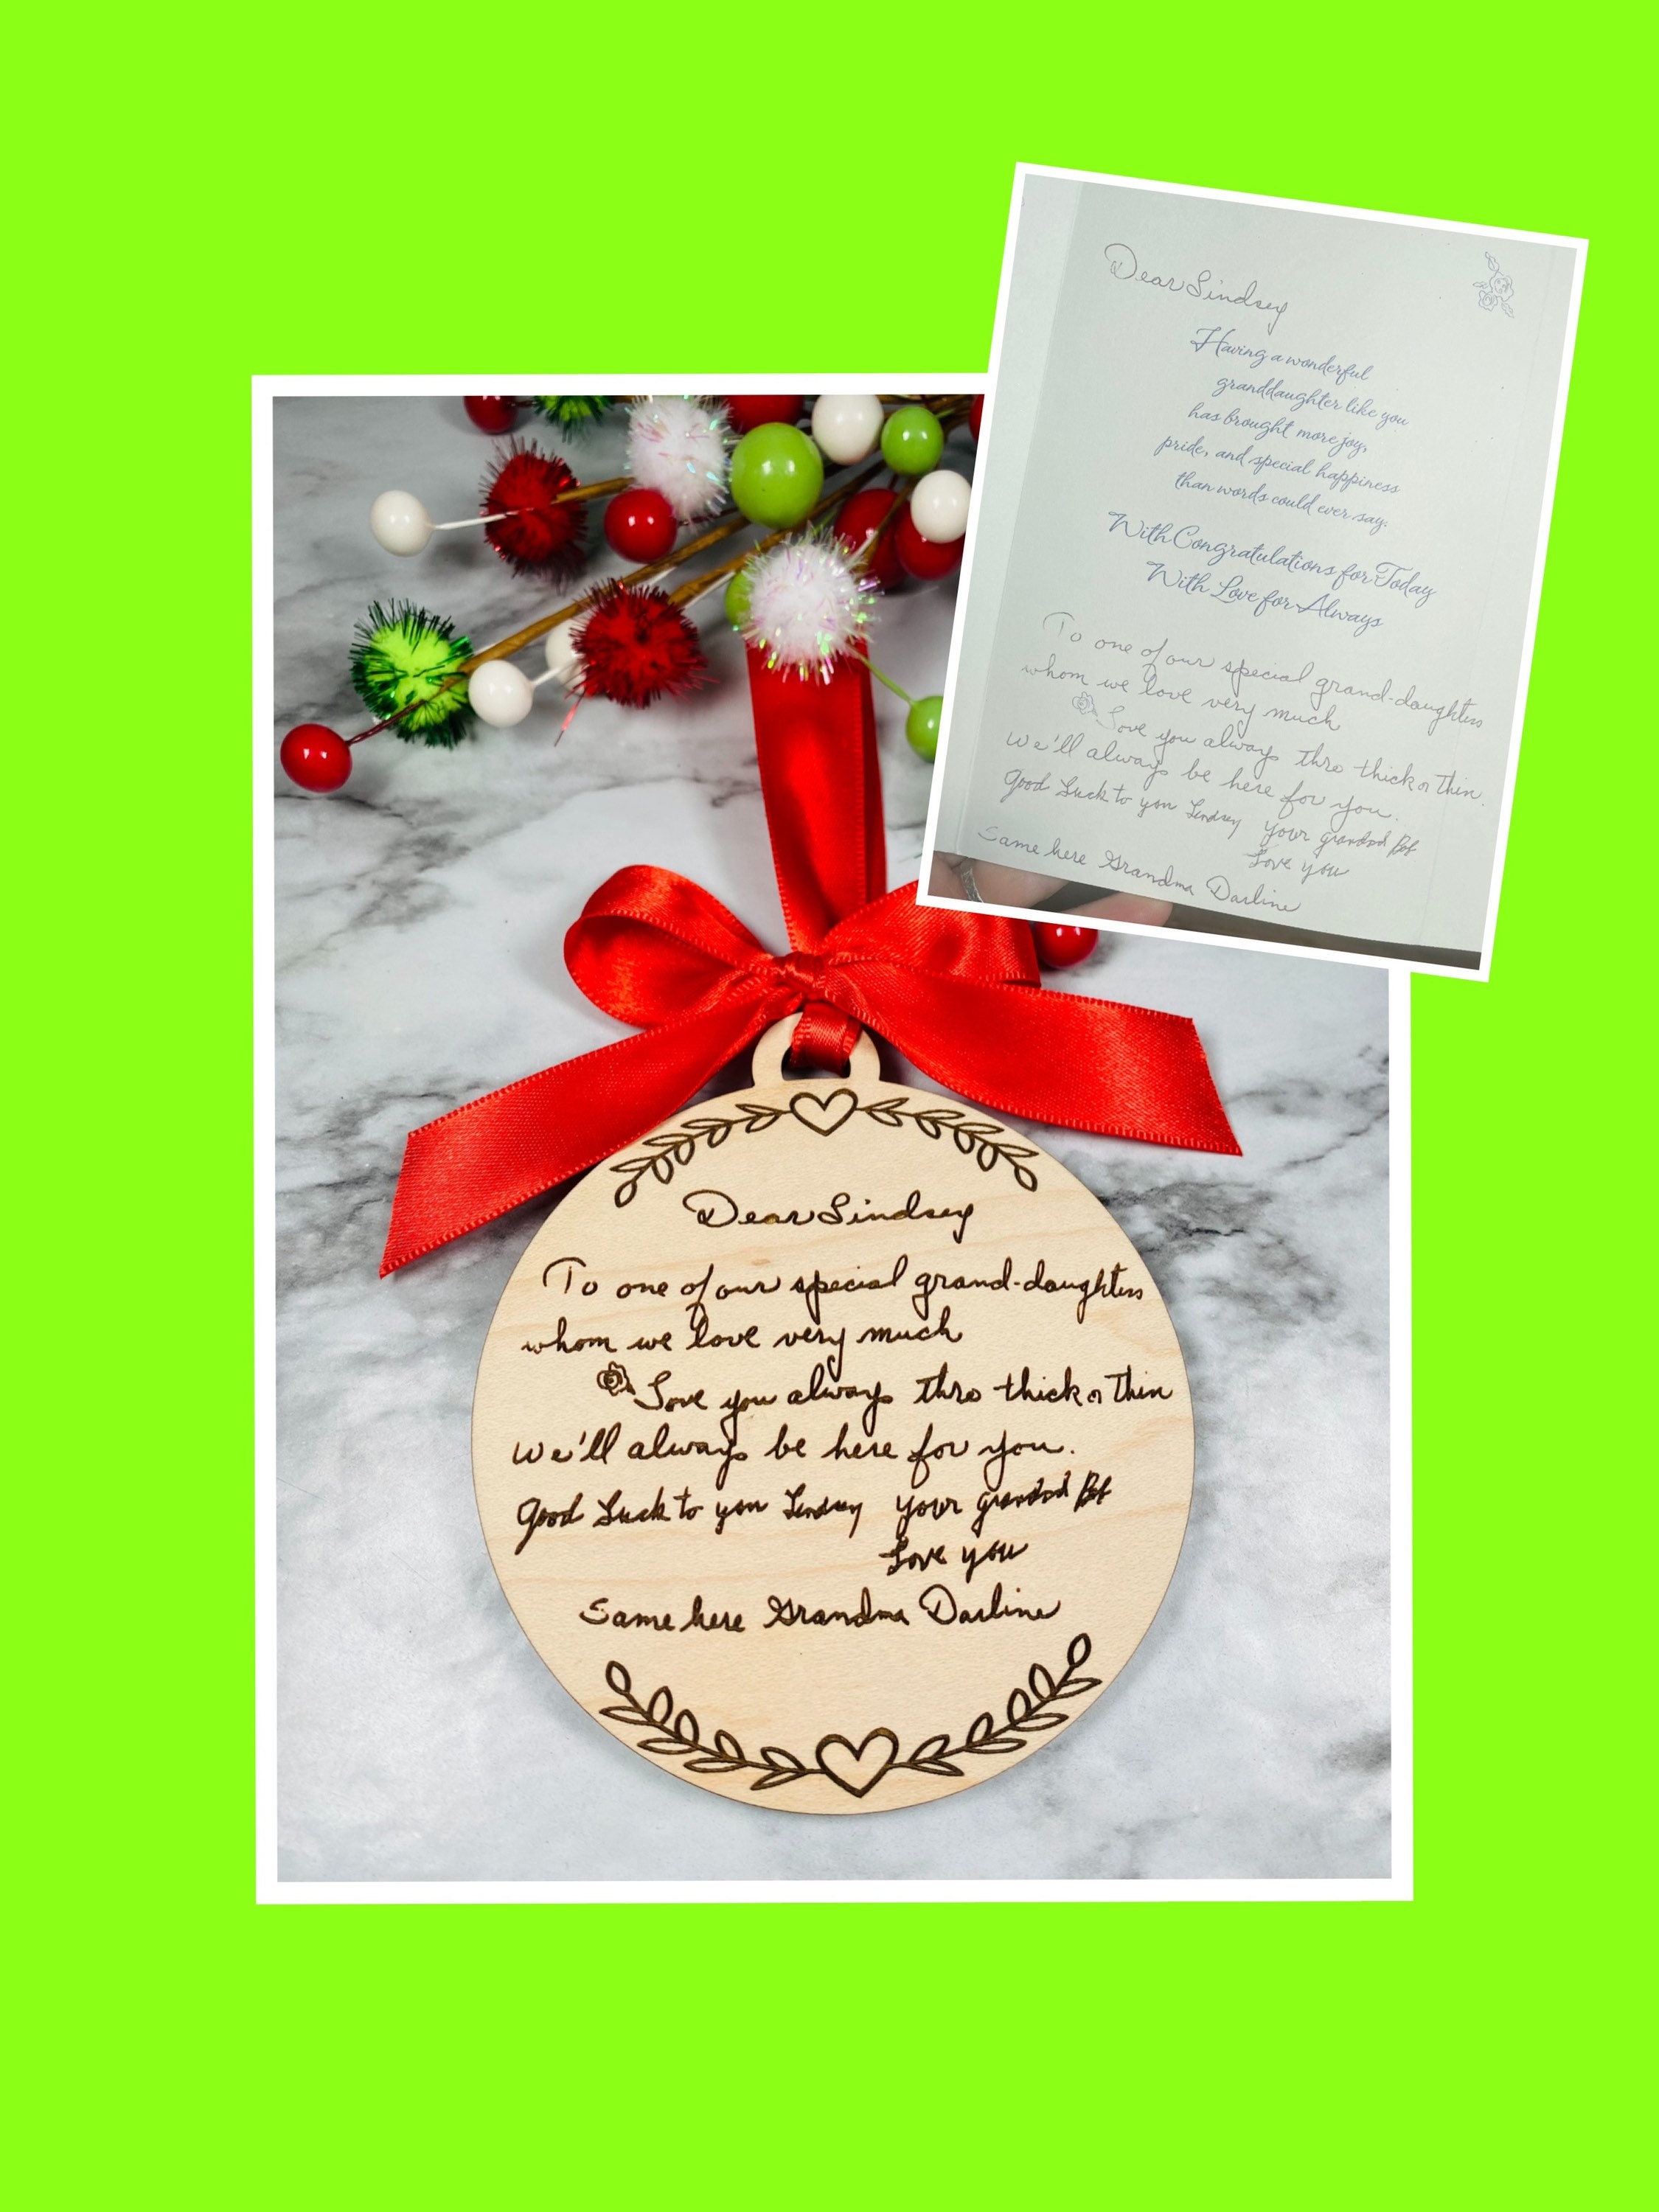 Dear Lindsey
Having a wonderful
granddaughter like you
has brought more joy,
pride, and special happiness
than words could ever say.
With Congratulations for Today
With Love for Always
To one of our special grand-daughters
whom we love very much
Love you always thro thick or thin.
We'll always be here for you.
Good Luck to you Lindsey your grandad Bob
Love you
Same here Grandma Darline
Dear Lindsey
To one of our special grand-daughters
whom we love very much
Love you always thro thick or thin
We'll always be here for you.
Good Luck to you Lindsey your grandad Bob
Love you
Same here Grandma Darline